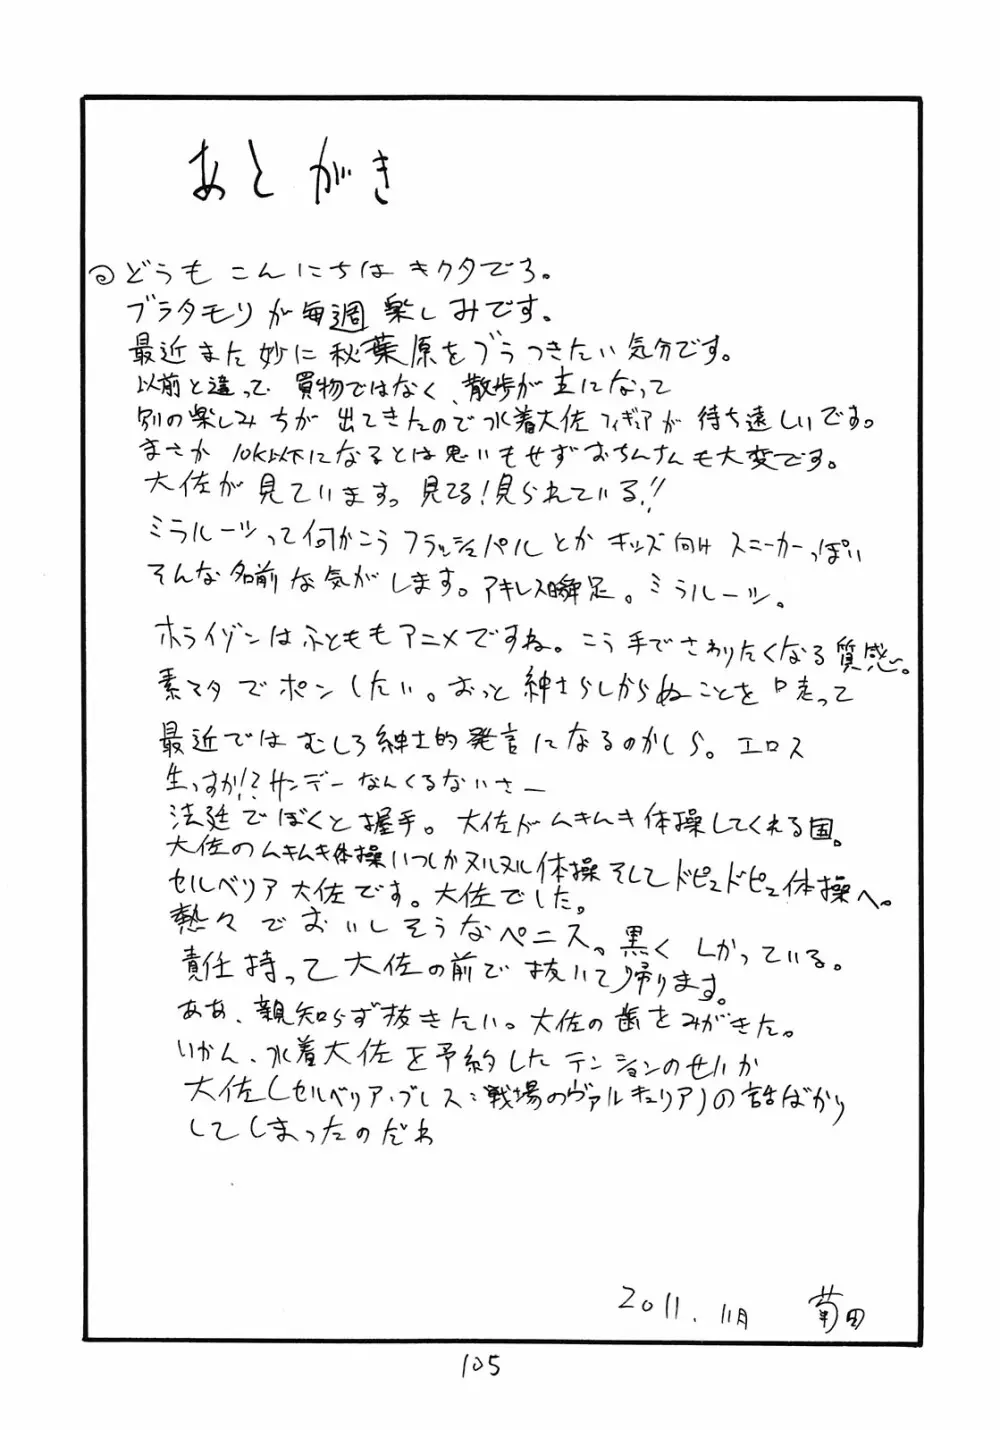 あとがき
どうも こんにちは キクタでろ。
ブラタモリが毎週 楽しみです。
最近また妙に秋葉原をブラつきたい気分です。
以前と違って 買物ではなく、散歩が主になって
別の楽しみちが 出てきたので水着大佐フィギュアが 待ち遠しいです。
まさか 10K以下になるとは思いもせずおちんさんも大変です。
大佐が見ています。見てる!見られている!!
ミラルーツって何かこう フラッシュパルとか キッズ向け スニーカーっぽい
そんな名前な気がします。アキレス瞬足。ミラルーツ。
ホライゾンはふとももアニメですね。こう手でさわりたくなる質感。
素マタでポンしたい。おっと紳士らしからぬことを口走って
最近では むしろ紳士的発言になるのかしら。エロス
生っすか!?サンデー なんくるないさー
法廷でぼくと握手。大佐がムキムキ体操してくれる国。
大佐のムキムキ体操いつしかヌルヌル体操そしてドピュドピュ体操へ。
セルベリア大佐です。大佐でした。
熱々でおいしそうなペニス。黒く しかっている。
責任持って大佐の前で抜いて帰ります。
ああ、親知らず抜きたい。大佐の歯をみがきた。
いかん、水着大佐を予約したテンションのせいか
大佐(セルベリア・ブレス:戦場のヴァルキュリア)の話ばかり
してしまったのだわ
2011.11月 菊田
105